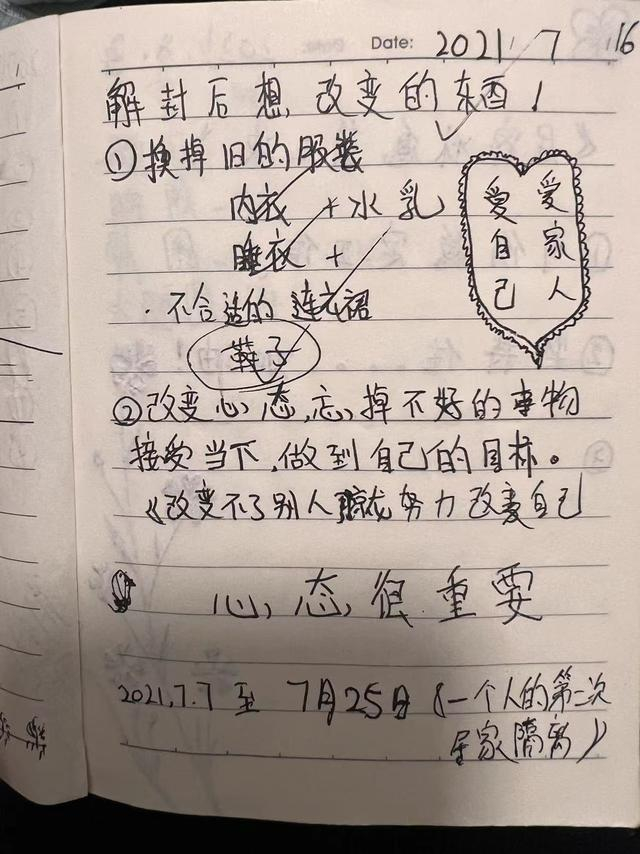 Date: 2021 7 16
解封后想改变的东西！
①换掉旧的服装
内衣 + 水乳
睡衣 +
· 不合适的 连衣裙
鞋子
爱家人
爱自己
②改变心态,忘掉不好的事物
接受当下,做到自己的目标。
《改变不了别人就努力改变自己
心态很重要
2021.7.7 至 7月25日（一个人的第二次
居家隔离）